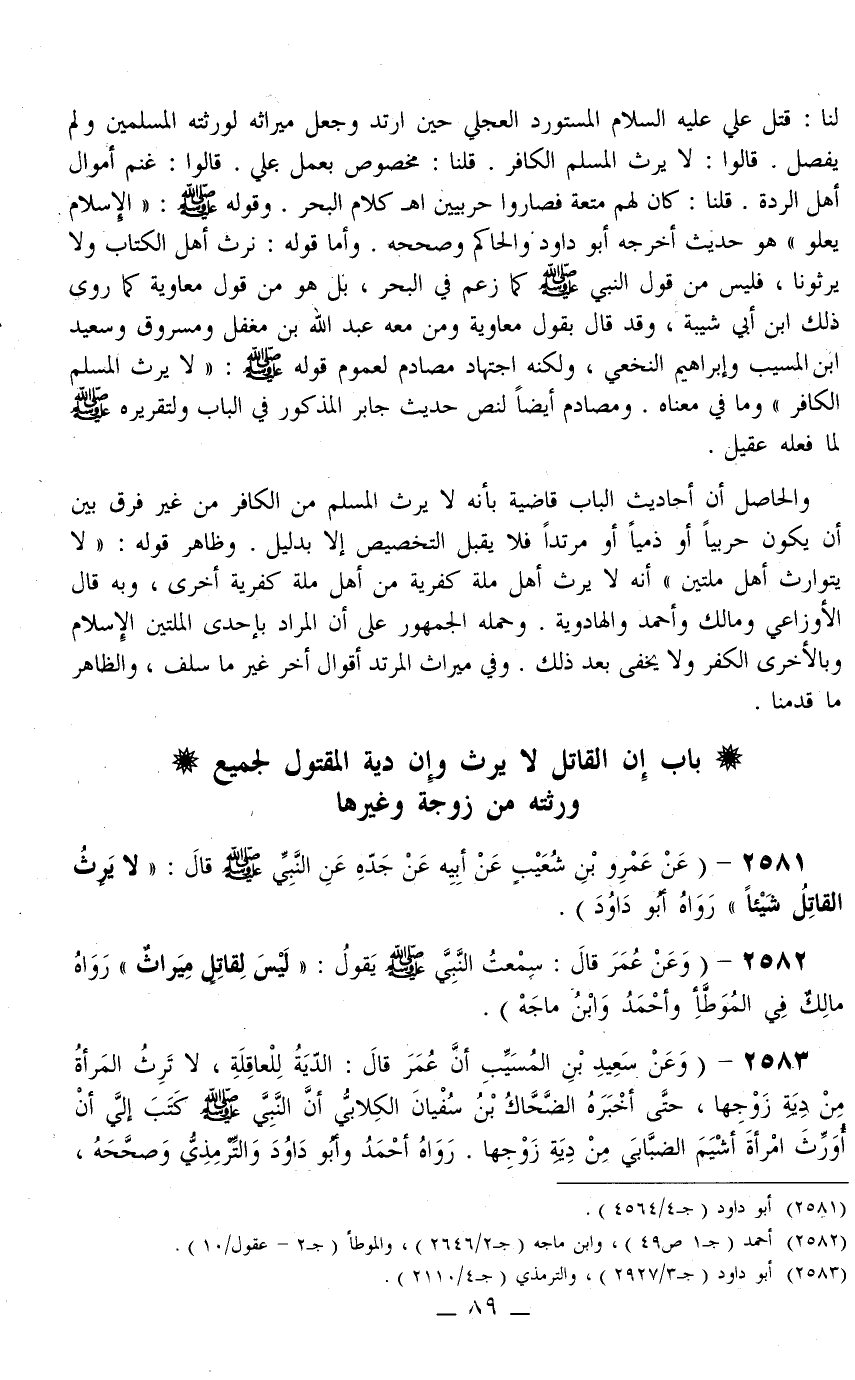 لنا : قتل علي عليه السلام المستورد العجلي حين ارتد وجعل ميراثه لورثته المسلمين ولم
يفصل . قالوا : لا يرث المسلم الكافر . قلنا : مخصوص بعمل علي . قالوا : غنم أموال
أهل الردة . قلنا : كان لهم متعة فصاروا حربيين اهـ كلام البحر . وقوله ﷺ : « الإسلام
يعلو » هو حديث أخرجه أبو داود والحاكم وصححه . وأما قوله : نرث أهل الكتاب ولا
يرثونا ، فليس من قول النبي ﷺ كما زعم في البحر ، بل هو من قول معاوية كما روى
ذلك ابن أبي شيبة ، وقد قال بقول معاوية ومن معه عبد الله بن مغفل ومسروق وسعيد
ابن المسيب وإبراهيم النخعي ، ولكنه اجتهاد مصادم لعموم قوله ﷺ : « لا يرث المسلم
الكافر » وما في معناه . ومصادم أيضاً لنص حديث جابر المذكور في الباب ولتقريره ﷺ
لما فعله عقيل .
والحاصل أن أحاديث الباب قاضية بأنه لا يرث المسلم من الكافر من غير فرق بين
أن يكون حربياً أو ذمياً أو مرتداً فلا يقبل التخصيص إلا بدليل . وظاهر قوله : « لا
يتوارث أهل ملتين » أنه لا يرث أهل ملة كفرية من أهل ملة كفرية أخرى ، وبه قال
الأوزاعي ومالك وأحمد والهادوية . وحمله الجمهور على أن المراد بإحدى الملتين الإسلام
وبالأخرى الكفر ولا يخفى بعد ذلك . وفي ميراث المرتد أقوال أخر غير ما سلف ، والظاهر
ما قدمنا .
✷ باب إن القاتل لا يرث وإن دية المقتول لجميع ✷
ورثته من زوجة وغيرها
٢٥٨١ – ( عَنْ عَمْرِو بْنِ شُعَيْبٍ عَنْ أبِيه عَنْ جَدّهِ عَنِ النَّبِيِّ ﷺ قالَ : « لا يَرِثُ
القاتِلُ شَيْئاً » رَوَاهُ أبُو دَاوُدَ ) .
٢٥٨٢ – ( وَعَنْ عُمَرَ قالَ : سمِعْتُ النَّبِيَّ ﷺ يَقولُ : « لَيْسَ لِقاتِلٍ مِيَراثٌ » رَوَاهُ
مالِكٌ فِي المُوَطَّأِ وأحْمَدُ وَابْنُ ماجَهْ ) .
٢٥٨٣ – ( وَعَنْ سَعِيدِ بْنِ المُسَيِّبِ أنَّ عُمَرَ قالَ : الدّيَةُ لِلْعاقِلَةِ ، لا تَرِثُ المَرأةُ
مِنْ دِيَةِ زَوْجِها ، حتَّى أخْبَرَهُ الضَّحَّاكُ بْنُ سُفْيانَ الكِلابيُّ أنَّ النَّبِيَّ ﷺ كَتَبَ إليَّ أنْ
أُوَرِّثَ امْرأةَ أشْيَمَ الضبَّابي مِنْ دِيَةِ زَوْجِها . رَوَاهُ أحْمَدُ وأبُو دَاوُدَ وَالتِّرْمِذِيُّ وَصحَّحَهُ ،
(٢٥٨١) أبو داود ( جـ٤/٤٥٦٤ ) .
(٢٥٨٢) أحمد ( جـ١ ص٤٩ ) ، وابن ماجه ( جـ٢/٢٦٤٦ ) ، والموطأ ( جـ٢ – عقول/١٠ ) .
(٢٥٨٣) أبو داود ( جـ٣/٢٩٢٧ ) ، والترمذي ( جـ٤/٢١١٠ ) .
— ٨٩ —